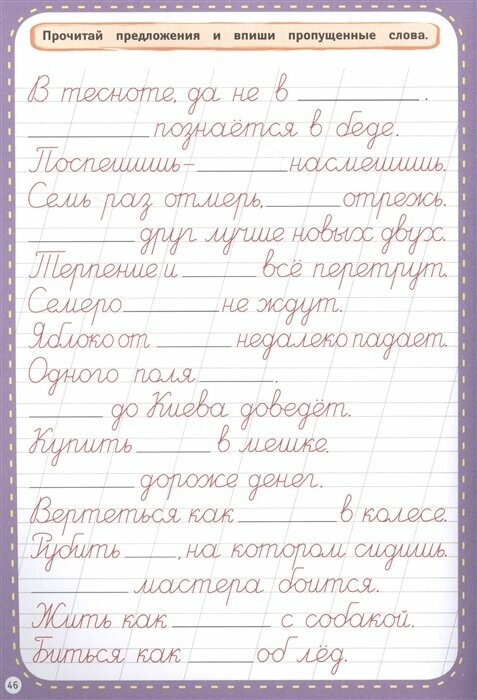 Прочитай предложения и впиши пропущенные слова.
В тесноте, да не в ________.
________ познаётся в беде.
Поспешишь- ________ насмешишь.
Семь раз отмерь, ________ отрежь.
________ друг лучше новых двух.
Терпение и ________ всё перетрут.
Семеро ________ не ждут.
Яблоко от ________ недалеко падает.
Одного поля ________.
________ до Киева доведёт.
Купить ________ в мешке.
________ дороже денег.
Вертеться как ________ в колесе.
Рубить ________, на котором сидишь.
________ мастера боится.
Жить как ________ с собакой.
Биться как ________ об лёд.
46